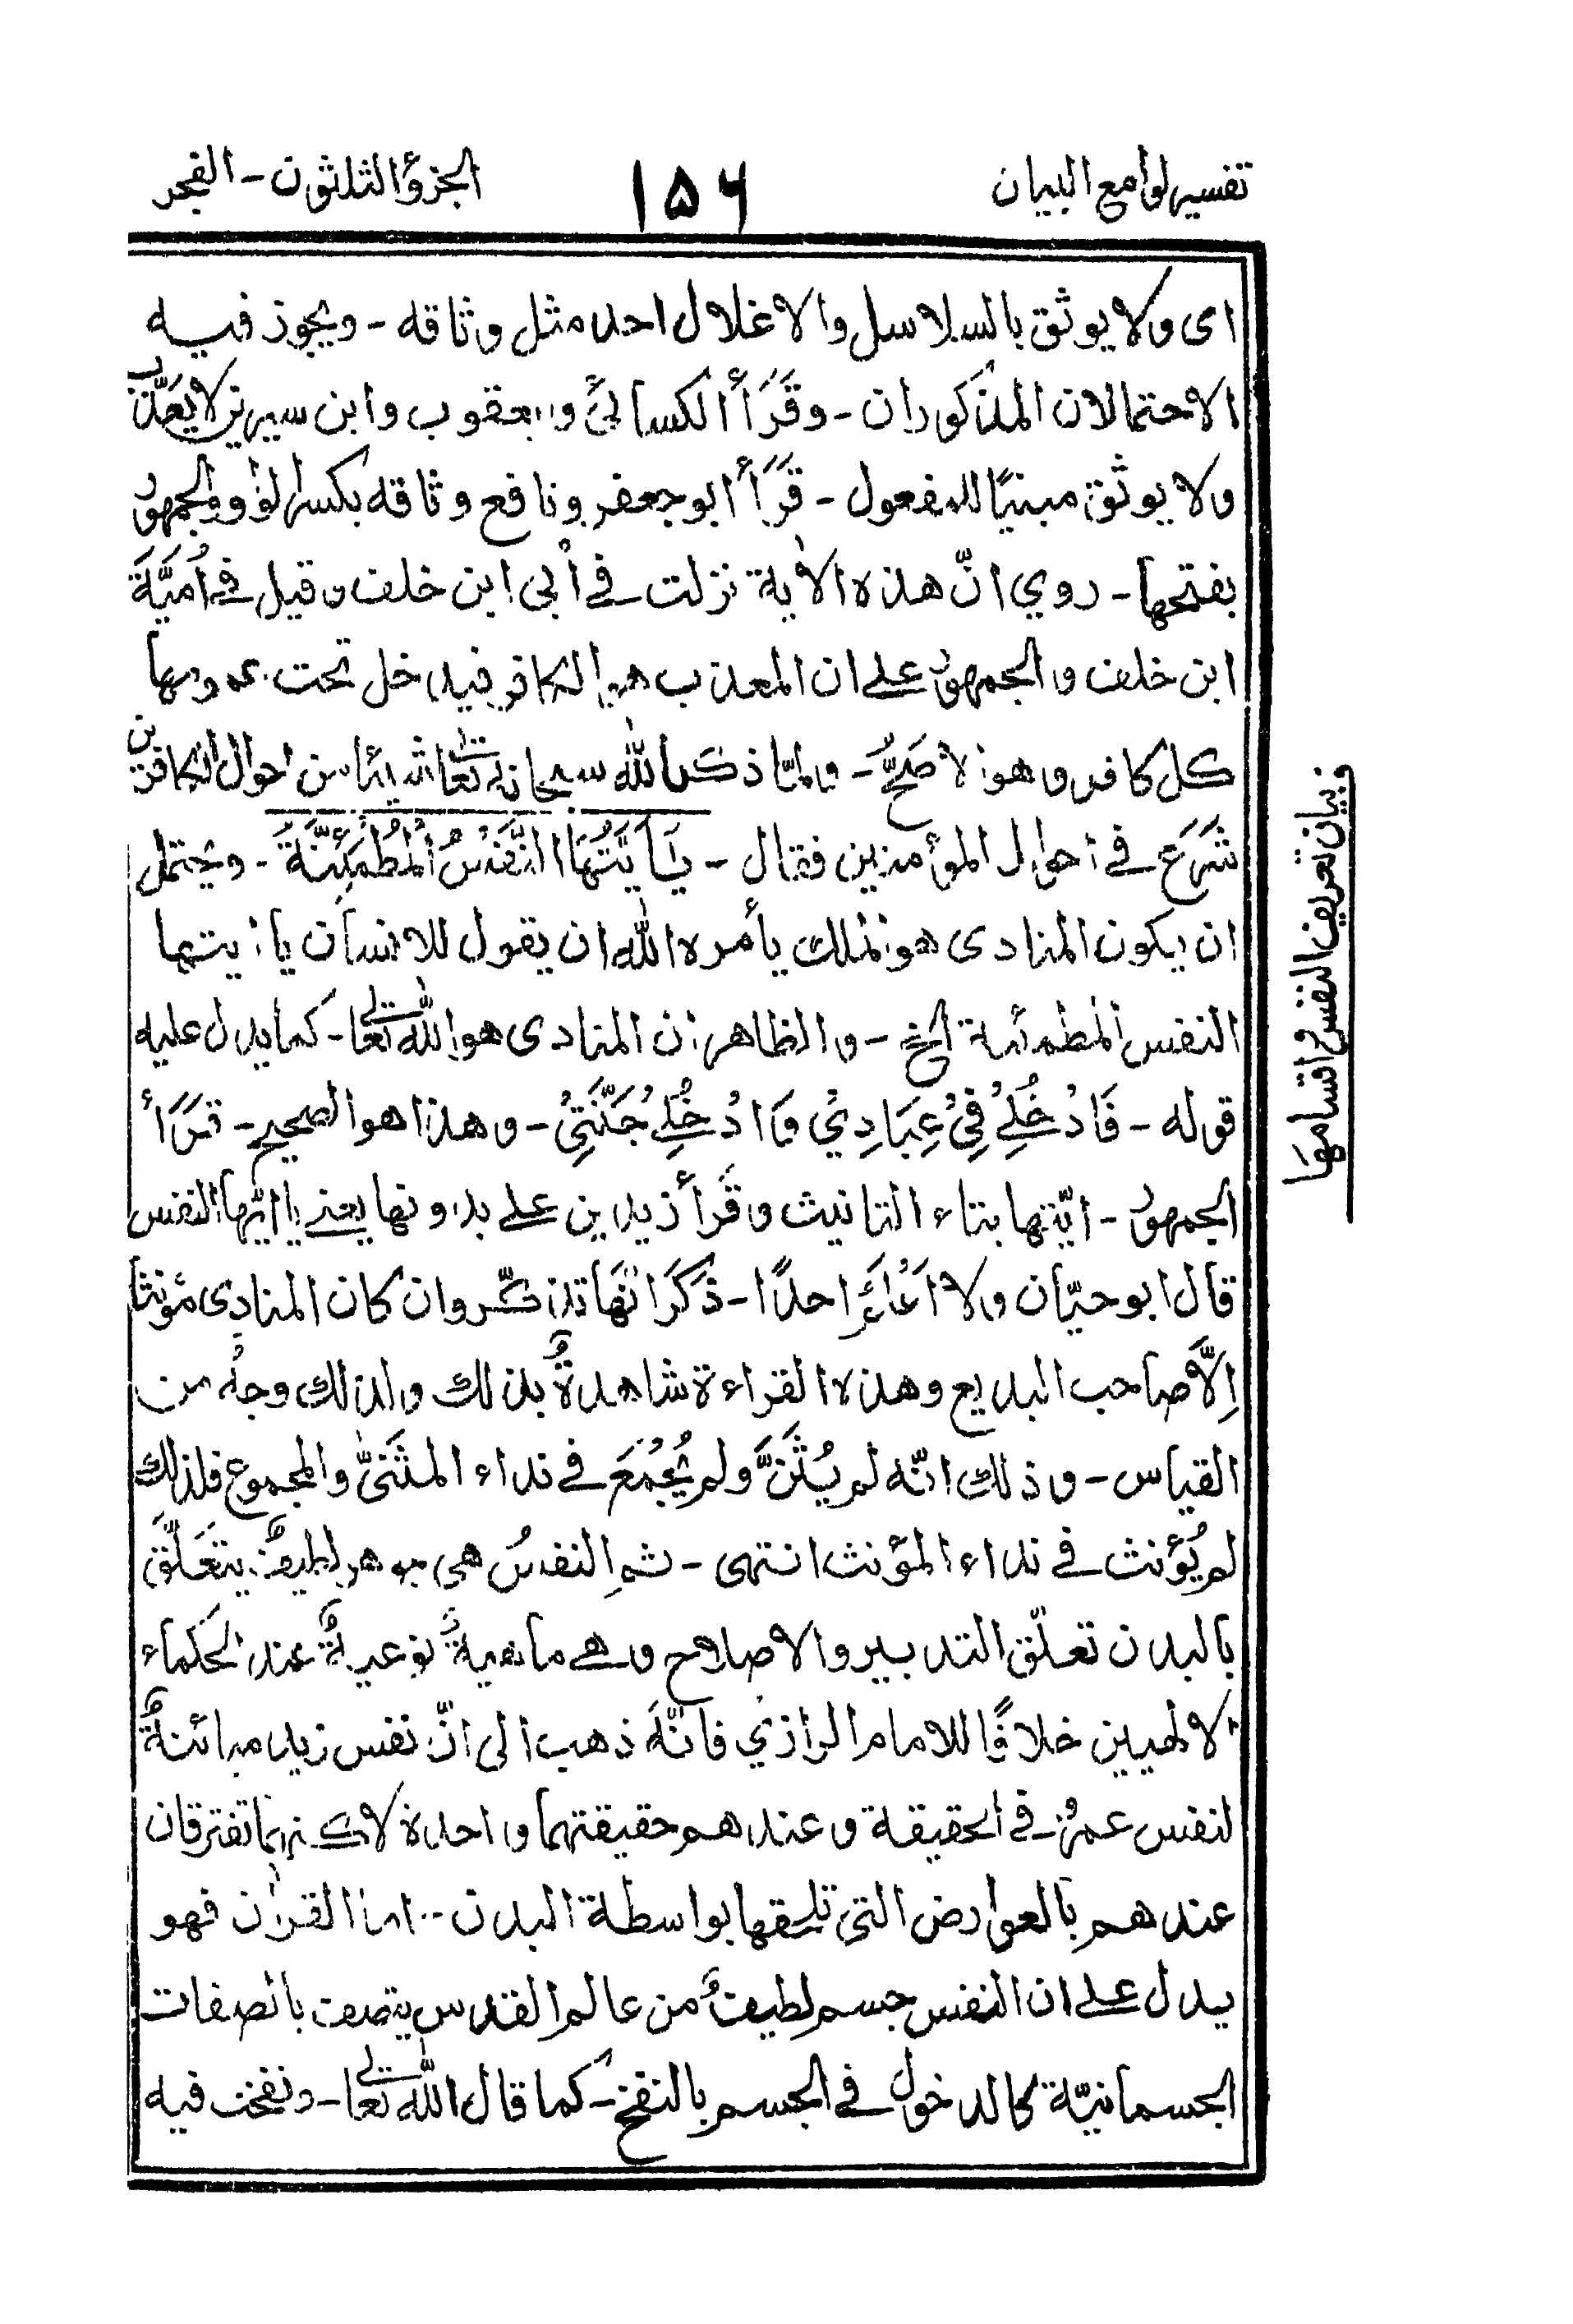 تفسير لوامع البيان
١٥٦
الجزؤ الثلثون - الفجر
اى ولا يوثق بالسلاسل والاغلال احد مثل وثاقه - ويجوز فيه
الاحتمالان المذكوران - وقَرَأَ الكسائىُّ ويعقوب وابن سيرين لا يعَذَّب
ولا يوثق مبنيًا للمفعول - قَرَأَ ابوجعفر ونافع وثاقه بكسر الواو والجمهورُ
بفتحها - روي انّ هذه الاٰية نزلت في اُبي ابن خلف وقيل في اُمَيَّةَ
ابن خلف والجمهورُ على ان المعذب هو الكافر فيدخل تحت عمومها
كل كافر وهو الاصَحُّ - ولمّا ذكر الله سبحانه تعالى شيئا من احوال الكافرين
شَرَعَ في احوال المؤمنين فقال - يٰاَيَّتُهَا النَّفْسُ الْمُطْمَئِنَّةُ - ويحتمل
ان يكون المنادى هو الملك يأمره الله ان يقول للانسان يا ايتها
النفس المطمئنة الخ - والظاهر ان المنادى هو الله تعالى - كما يدل عليه
قوله - فَادْخُلِيْ فِيْ عِبَادِيْ وَادْخُلِيْ جَنَّتِيْ - وهذا هو الصحيح - قَرَأَ
الجمهورُ - ايّتها بتاء التانيث وقَرَأَ زيد بن علي بدونها يعني يا ايّها النفس
قال ابو حيّان ولا اَعْلَمُ احدًا - ذَكَرَ انّهَا تذكّر وان كان المنادى مؤنثا
اِلّاَ صاحب البديع وهذه القراءة شاهدةٌ بذلك ولذلك وجهٌ من
القياس - وذلك انّه لم يُثَنَّ ولم يُجْمَعَ في نداء المثَنّىٰ والمجموع فلذلك
لم يُؤنث في نداء المؤنث انتهى - ثم النفسُ هي جوهر لطيفٌ يتَعَلَّقُ
بالبدن تعلّق التدبير والاصلاح وهي ماهيةٌ نوعيةٌ عند الحكماء
الالهيين خلافًا للامام الرازي فانّهَ ذهب الى انّ نفس زيد مبائنةٌ
لنفس عمرٍو في الحقيقة وعندهم حقيقتهما واحدة لاكنهما تفترقان
عندهم بالعوارض التي تليقها بواسطة البدن - اما القراٰن فهو
يدل على ان النفس جسم لطيفٌ من عالم القدس يتصف بالصفات
الجسمانيّة كالدخول في الجسم بالنفخ - كما قال الله تعالى - ونفخت فيه
و بيان تعريف النفس و اقسامها